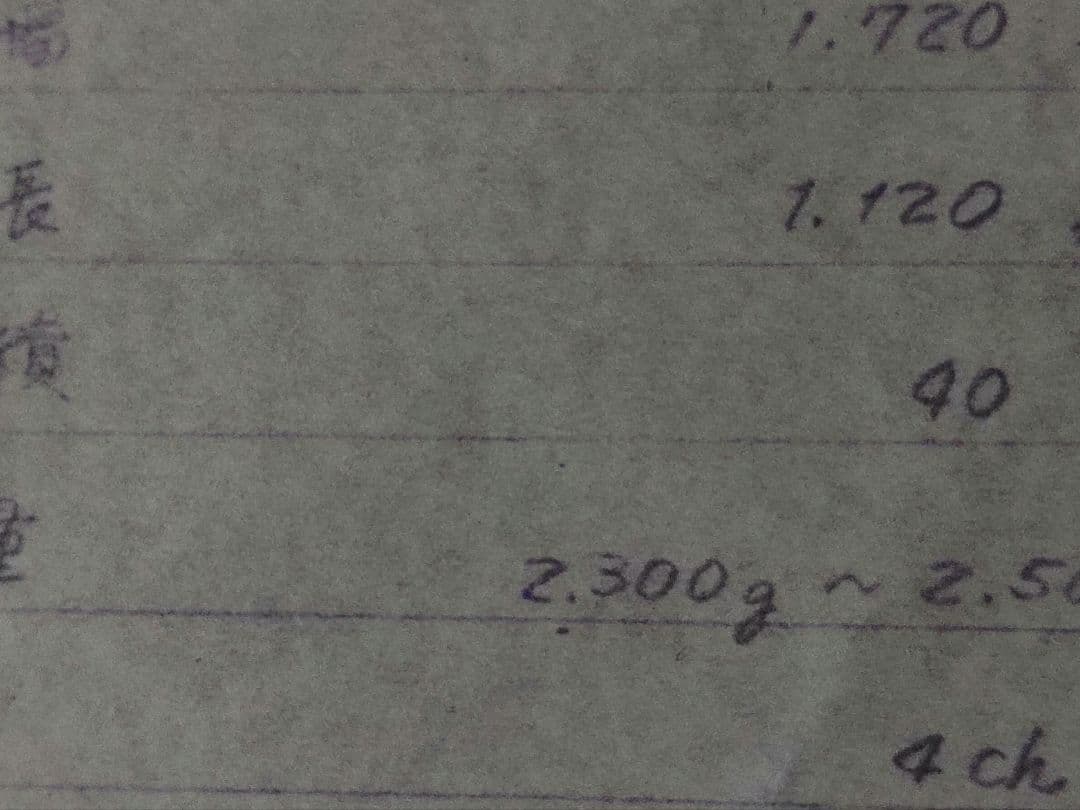 幅 1.720
長 1.120
積 40
重 2.300g ~ 2.50
4ch